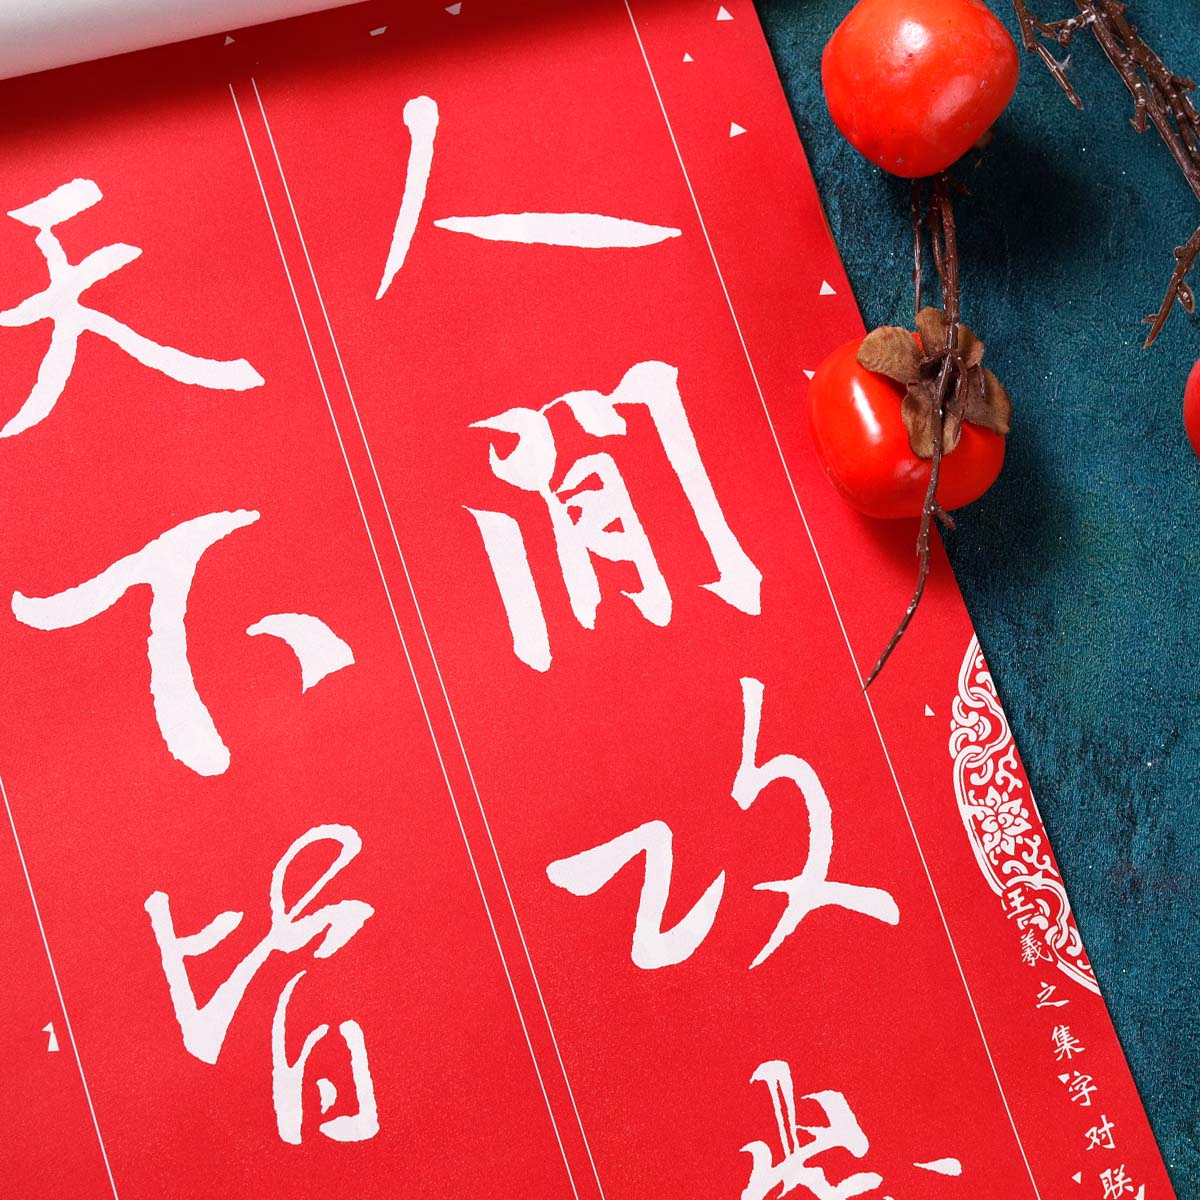 人閒改
天下皆
王羲之集字对联